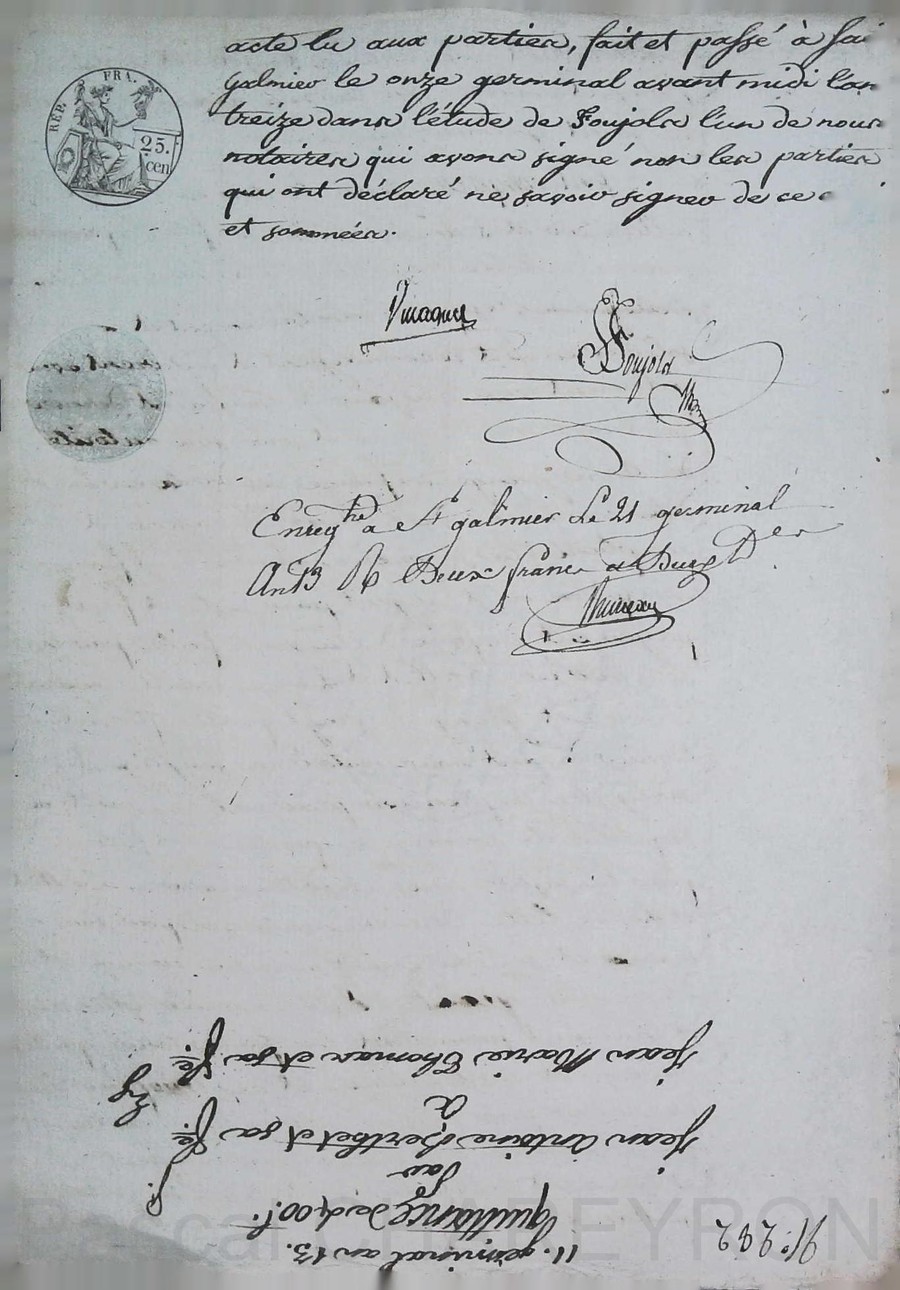 REP. FRA.
25.
cen
acte lu aux parties, fait et passé à Sai
galmier le onze germinal avant midi l'an
treize dans l'étude de Foujols l'un de nous
notaires qui avons signé non les parties
qui ont déclaré ne savoir signer de ce
et sommées.
Foujols
Enregtré a St galmier Le 21 germinal
An 13 R Deux francs et Deux Des
11. germinal an 13.
quittance de 400 f.
Par
Jean Antoine Berthet et sa fe.
a
Jean Marie Thomas et sa fe.
No. 282
Pascal CHALEYRON